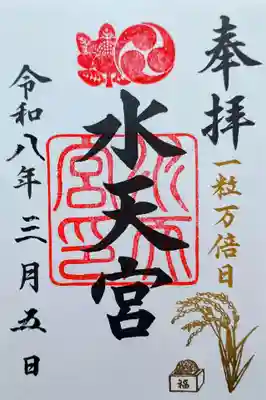 奉拝
一粒万倍日
水天宮
水天宮印
令和八年三月五日
福